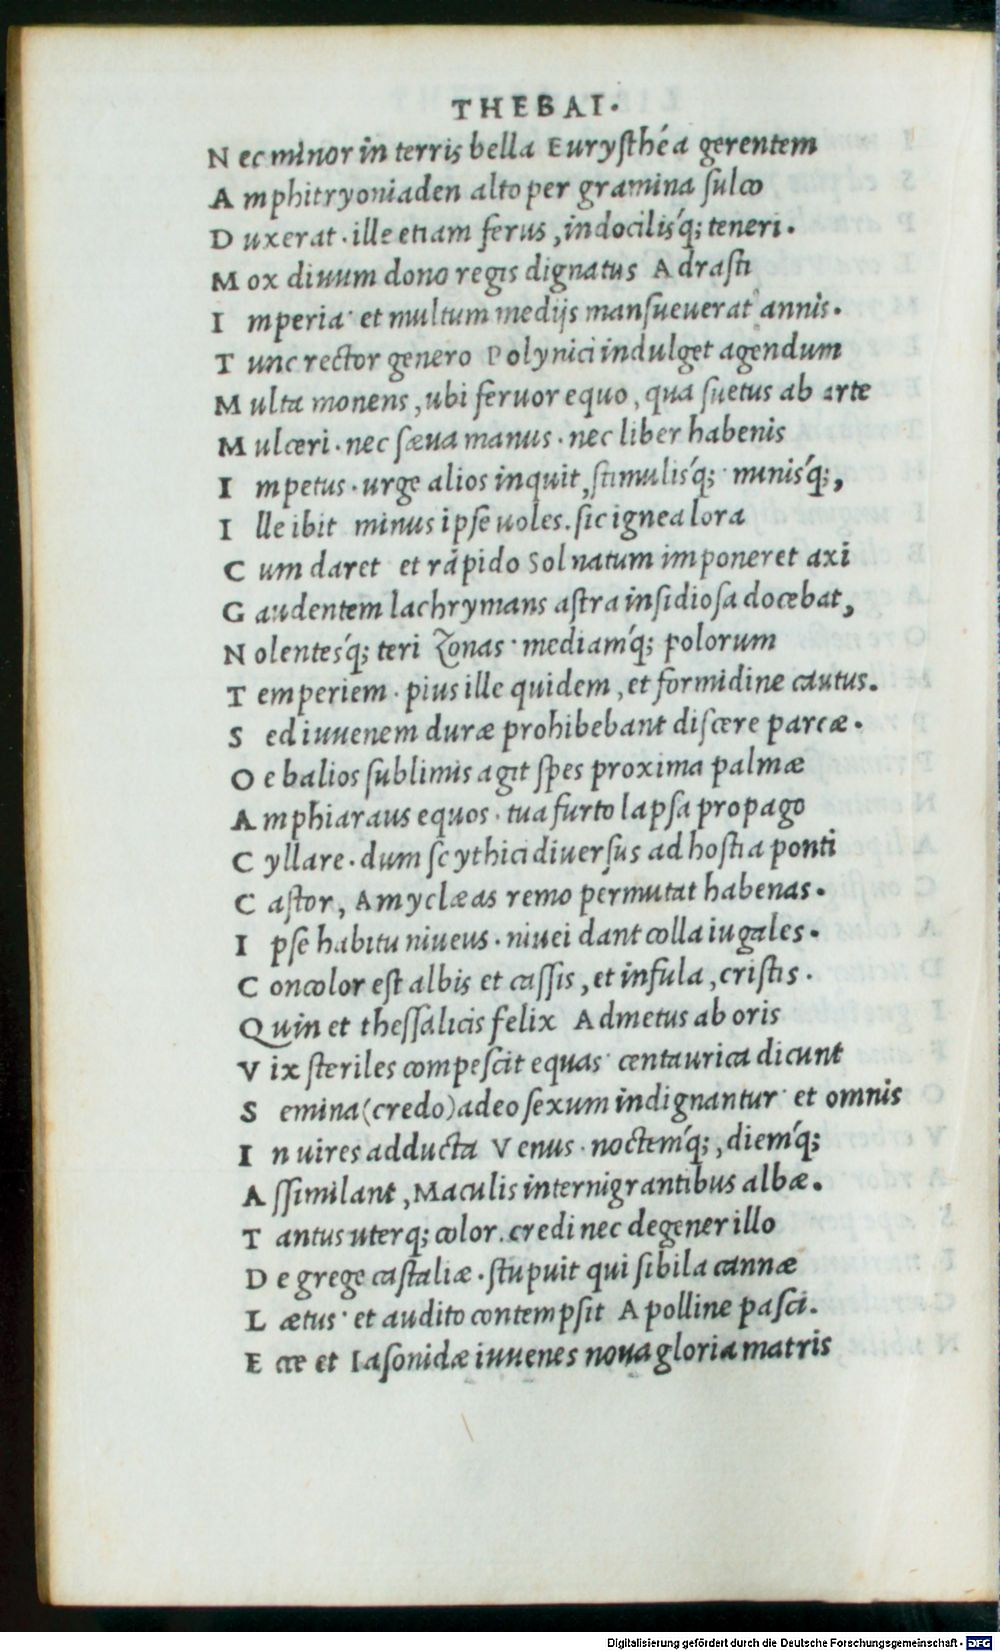 THEBAI.
N ec minor in terris bella Eurysthéa gerentem
A mphitryoniaden alto per gramina sulco
D uxerat. ille etiam ferus, indocilisq́; teneri.
M ox diuum dono regis dignatus Adrasti
I mperia· et multum medijs mansueuerat annis.
T unc rector genero Polynici indulget agendum
M ulta monens, ubi feruor equo, qua suetus ab arte
M ulceri. nec sæua manus. nec liber habenis
I mpetus. urge alios inquit, stimulisq́; minisq́;,
I lle ibit minus ipse uoles. sic ignea lora
C um daret et rápido Sol natum imponeret axi
G audentem lachrymans astra insidiosa docebat,
N olentesq́; teri Zonas· mediamq́; polorum
T emperiem. pius ille quidem, et formidine cautus.
S ed iuuenem duræ prohibebant discere parcæ.
O ebalios sublimis agit spes proxima palmæ
A mphiaraus equos. tua furto lapsa propago
C yllare. dum scythici diuersus ad hostia ponti
C astor, Amyclæas remo permutat habenas.
I pse habitu niueus. niuei dant colla iugales.
C oncolor est albis et cassis, et infula, cristis.
Q uin et thessalicis felix Admetus ab oris
V ix steriles compescit equas· centaurica dicunt
S emina (credo) adeo sexum indignantur· et omnis
I n uires adducta Venus. noctemq́;, diemq́;
A ssimilant, Maculis internigrantibus albæ.
T antus uterq; color. credi nec degener illo
D e grege castaliæ. stupuit qui sibila cannæ
L ætus· et audito contempsit Apolline pasci.
E cce et Iasonidæ iuuenes noua gloria matris
Digitalisierung gefördert durch die Deutsche Forschungsgemeinschaft - DFG